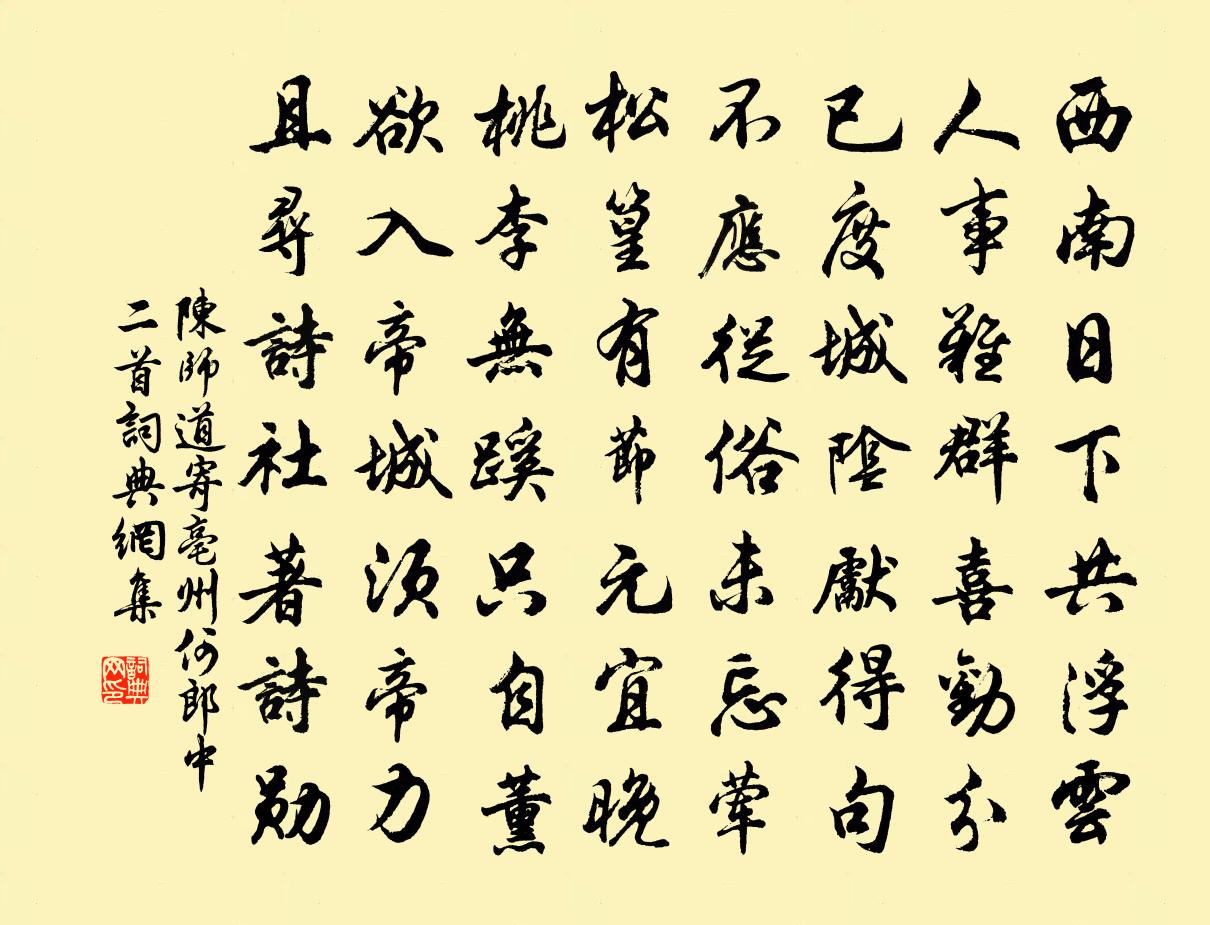 西南日下共浮雲
人事難群喜勤分
已度城陰獻得句
不應從俗未忘葷
松篁有節元宜晚
桃李無蹊只自薰
欲入帝城須帝力
且尋詩社著詩勛
陳師道寄亳州何郎中
二首詞典網集
詞典
网印